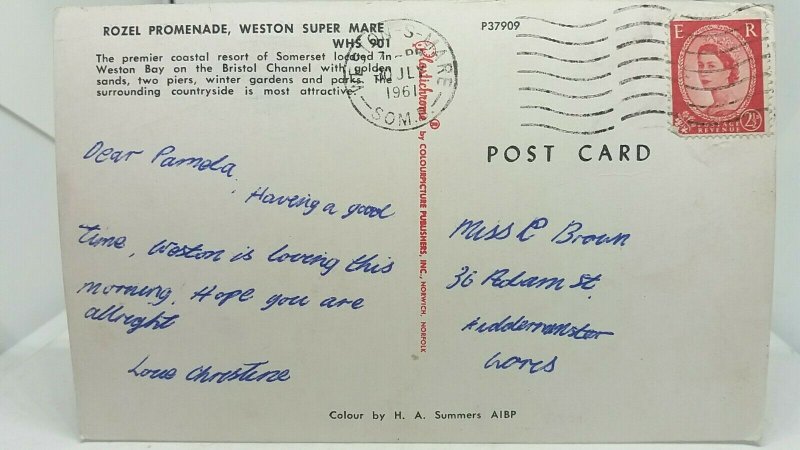 ROZEL PROMENADE, WESTON SUPER MARE
WHS 901
The premier coastal resort of Somerset located in
Weston Bay on the Bristol Channel with golden
sands, two piers, winter gardens and parks. The
surrounding countryside is most attractive.
Dear Pamela,
Having a good
time, Weston is loving this
morning. Hope you are
allright
Love Christine
WESTON-S-MARE
PM
10 JLY
1961
SOM.
Plastichrome® by COLOURPICTURE PUBLISHERS, INC., NORWICH, NORFOLK
P37909
E R
POSTAGE
REVENUE
2½D
POST CARD
Miss P Brown
36 Adam St
Kidderminster
Worcs
Colour by H. A. Summers AIBP